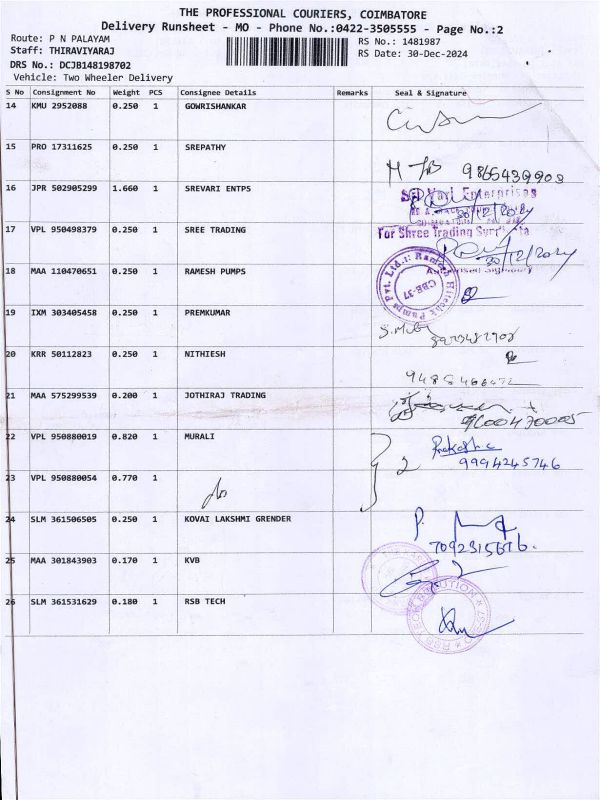 THE PROFESSIONAL COURIERS, COIMBATORE
Delivery Runsheet - MO - Phone No.:0422-3505555 - Page No.:2
Route: P N PALAYAM
RS No.: 1481987
Staff: THIRAVIYARAJ
RS Date: 30-Dec-2024
DRS No.: DCJB148198702
Vehicle: Two Wheeler Delivery
S No Consignment No Weight PCS Consignee Details Remarks Seal & Signature
14 KMU 2952088 0.250 1 GOWRISHANKAR
15 PRO 17311625 0.250 1 SREPATHY
9865439903
16 JPR 502905299 1.660 1 SREVARI ENTPS
Enterprises
30/12/2024
17 VPL 950498379 0.250 1 SREE TRADING
For Shree Trading
30/12/2024
18 MAA 110470651 0.250 1 RAMESH PUMPS
Ramesh Hitech Pumps Pvt. Ltd.,
CBE-37
19 IXM 303405458 0.250 1 PREMKUMAR
20 KRR 50112823 0.250 1 NITHIESH
21 MAA 575299539 0.200 1 JOTHIRAJ TRADING
9600470005
22 VPL 950880019 0.820 1 MURALI
2
9994245746
23 VPL 950880054 0.770 1
24 SLM 361506505 0.250 1 KOVAI LAKSHMI GRENDER
25 MAA 301843903 0.170 1 KVB
26 SLM 361531629 0.180 1 RSB TECH